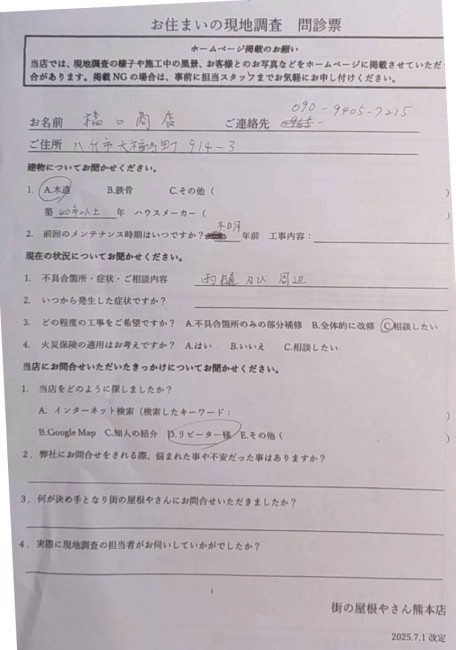 お住まいの現地調査 問診票
ホームページ掲載のお願い
当店では、現地調査の様子や施工中の風景、お客様とのお写真などをホームページに掲載させていただ
合があります。掲載NGの場合は、事前に担当スタッフまでお気軽にお申し付けください。
090-9405-7215
お名前 橋口商店 ご連絡先
ご住所 八代市大福寺町 914-3
建物についてお聞かせください。
1. A.木造 B.鉄骨 C.その他( )
築 40年以上 年 ハウスメーカー( )
2. 前回のメンテナンス時期はいつですか? 年前 工事内容:
現在の状況についてお聞かせください。
1. 不具合箇所・症状・ご相談内容 雨樋及び周辺
2. いつから発生した症状ですか?
3. どの程度の工事をご希望ですか? A.不具合箇所のみの部分補修 B.全体的に改修 C.相談したい
4. 火災保険の適用はお考えですか? A.はい B.いいえ C.相談したい
当店にお問合せいただいたきっかけについてお聞かせください。
1. 当店をどのように探しましたか?
A. インターネット検索(検索したキーワード: )
B.Google Map C.知人の紹介 D.リピーター様 E.その他( )
2. 弊社にお問合せをされる際、悩まれた事や不安だった事はありますか?
3. 何が決め手となり街の屋根やさんにお問合せいただきましたか?
4. 実際に現地調査の担当者がお伺いしていかがでしたか?
1
街の屋根やさん熊本店
2025.7.1 改定